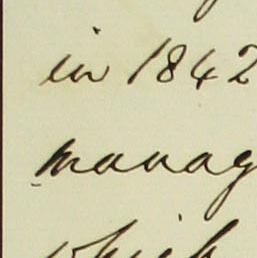 in 1842
manag
which